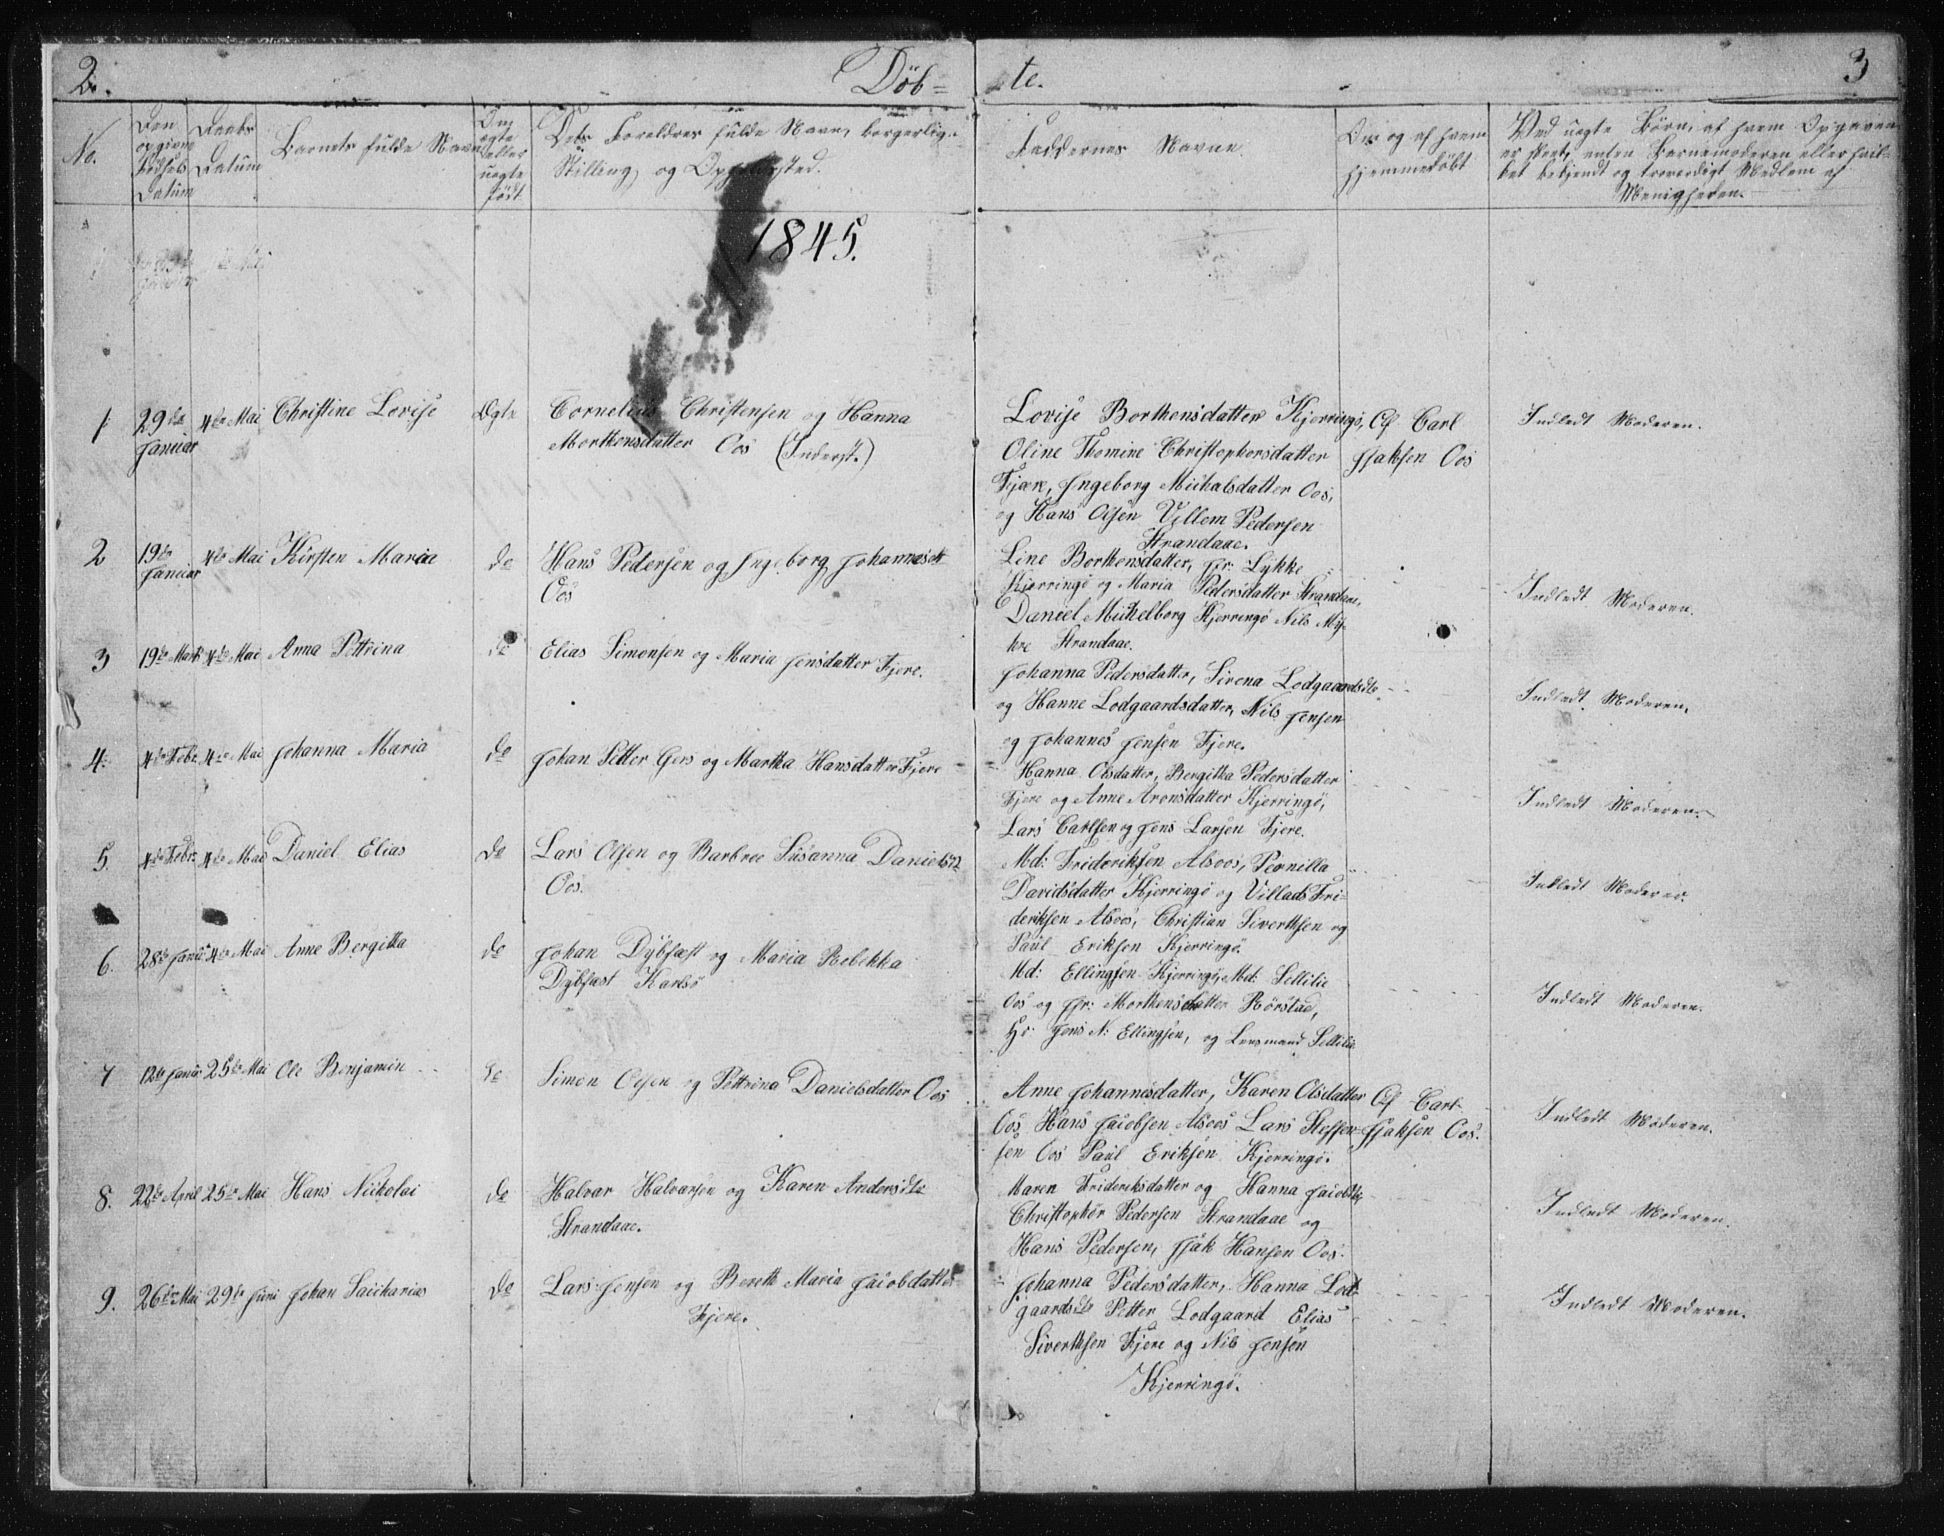 2. Döb= te. 3
No. Den opgivne Fødsels Datum Daabs Datum Barnets fulde Navn Om ægte eller uægte født Dets Foreldres fulde Navn, borgerlige Stilling, og Opholdssted. Faddernes Navne Om og af hvem hjemmedøbt Ved uægte Børn, af hvem Opgaven er skeet, enten Barnemoderen eller hvilket bekjendt og troværdigt Medlem af Menigheden.
1845.
1 29de Januar 4de Mai Christine Lovise Ægte Cornelius Christensen og Hanna
Morthensdatter Oos (Inderst.)
Lovise Borthensdatter Kjerringö,
Oline Thomine Christophorsdatter
Fjære, Ingeborg Michalsdatter Oos,
og Hans Olsen Villem Pedersen
Strandaae.
Af Carl
Isaksen Oos
Indledt Moderen.
2 19de Januar 4de Mai Kirsten Maria do Hans Pedersen og Ingeborg Johannesdtt
Oos
Line Borthensdatter, Jfr: Lykke
Kjerringö og Maria Pedersdatter Strandaae,
Daniel Michelborg Kjerringö Nils
Strandaae.
Indledt Moderen.
3 19de Marts 4de Mai Anna Pettrina do Elias Simonsen og Maria Jensdatter Fjere.
Johanna Pedersdatter, Sirena Lodgaardsdtr
og Hanne Lodgaardsdatter, Nils Jensen
og Johannes Jensen Fjere.
Indledt Moderen.
4. 4de Febr. 4de Mai Johanna Maria do Johan Petter Gers og Martha Hansdatter Fjere
Hanna Olsdatter, Bergitha Pedersdatter
Fjere og Anne Aronsdatter Kjerringö,
Lars Carlsen og Jens Larsen Fjere.
Indledt Moderen.
5. 4de Febr. 4de Mai Daniel Elias do Lars Olsen og Barbroe Susanna Danielsdtr
Oos.
Md: Frideriksen Alsoos, Pernilla
Davidsdatter Kjerringö og Villads Fri-
deriksen Alsoos, Christian Siverthsen og
Paul Eriksen Kjerringö.
Indledt Moderen.
6. 28de Januar 4de Mai Anne Bergitta do Johan Dybfæst og Maria Rebekka
Dybfæst Karlsö
Md: Ellingsen Kjerringö, Md: Sellilie
Oos og Jfr: Morthensdatter Rörstad,
Hr: Jens N: Ellingsen, og Lensmand Sellilie
Indledt Moderen.
7 12te Januar 25de Mai Ole Benjamin do Simon Olsen og Pettrina Danielsdatter Oos
Anne Johannesdatter, Karen Olsdatter
Oos Hans Jacobsen Alsoos Lars Steffen-
sen Oos Paul Eriksen Kjerringö.
Af Carl
Isaksen Oos.
Indledt Moderen.
8. 22de April 25de Mai Hans Nickolai do Halvar Halvarsen og Karen Andersdtr
Strandaae.
Maren Frideriksdatter og Hanna Jacobsdtr,
Christophor Pedersen Strandaae og
Hans Pedersen, Isak Hansen Oos.
Indledt Moderen.
9. 26de Mai 29de Juni Johan Saicharias do Lars Jensen og Bereth Maria Jacobdatter
Fjere.
Johanna Pedersdatter, Hanna Lod-
gaardsdtr Petter Lodgaard Elias
Siverthsen Fjere og Nils Jensen
Kjerringö.
Indledt Moderen.